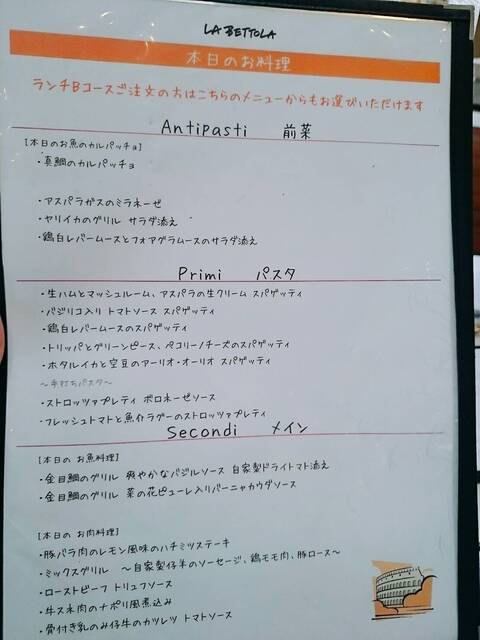 LA BETTOLA
本日のお料理
ランチBコースご注文の方はこちらのメニューからもお選びいただけます
Antipasti 前菜
[本日のお魚のカルパッチョ]
・真鯛のカルパッチョ
・アスパラガスのミラネーゼ
・ヤリイカのグリル サラダ添え
・鶏白レバームースとフォアグラムースのサラダ添え
Primi パスタ
・生ハムとマッシュルーム、アスパラの生クリーム スパゲッティ
・バジリコ入り トマトソース スパゲッティ
・鶏白レバームースのスパゲッティ
・トリッパとグリーンピース、ペコリーノチーズのスパゲッティ
・ホタルイカと空豆のアーリオ・オーリオ スパゲッティ
～手打ちパスタ～
・ストロッツァプレティ ボロネーゼソース
・フレッシュトマトと魚介ラグーのストロッツァプレティ
Secondi メイン
[本日の お魚料理]
・金目鯛のグリル 爽やかなバジルソース 自家製ドライトマト添え
・金目鯛のグリル 菜の花ピューレ入りバーニャカウダソース
[本日の お肉料理]
・豚バラ肉のレモン風味のハチミツステーキ
・ミックスグリル ～自家製仔羊のソーセージ、鶏モモ肉、豚ロース～
・ローストビーフ トリュフソース
・牛スネ肉のナポリ風煮込み
・骨付き乳のみ仔牛のカツレツ トマトソース